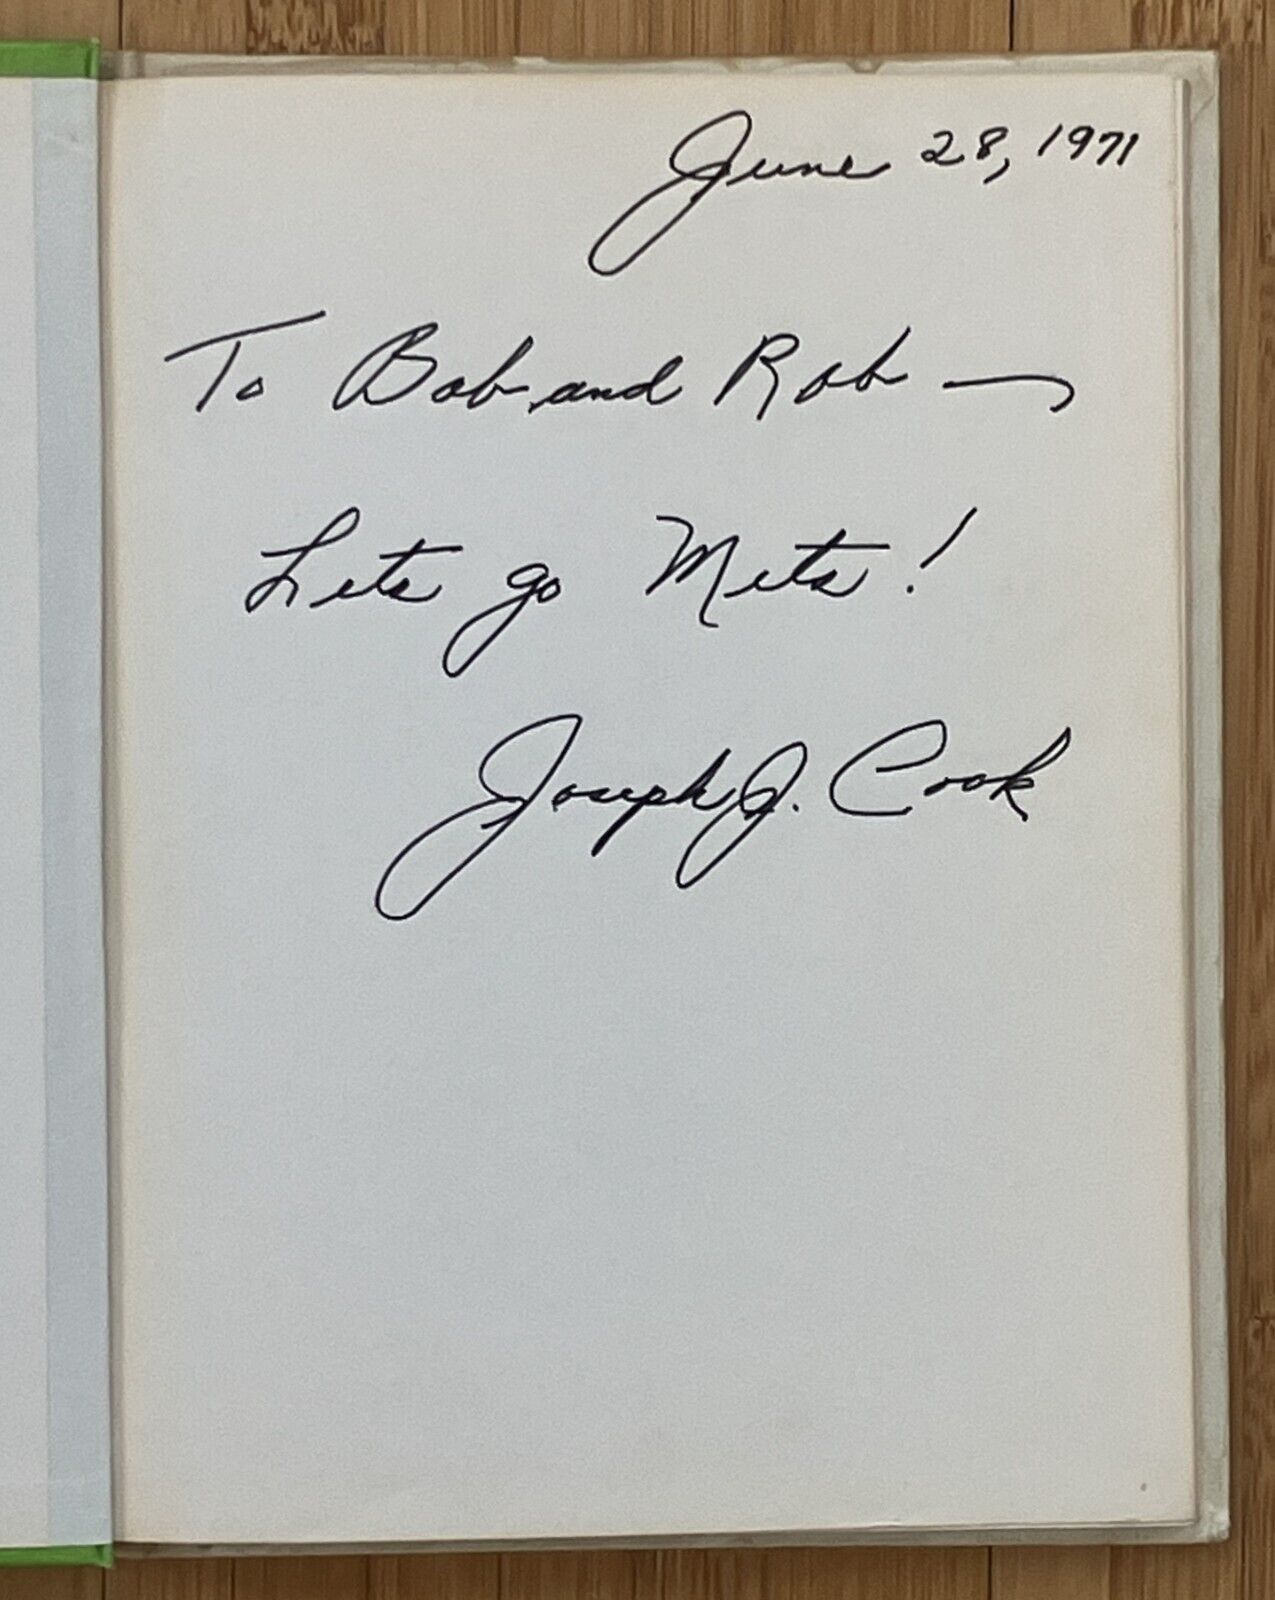 June 28, 1971
To Bob and Rob —
Lets go Mets!
Joseph J. Cook